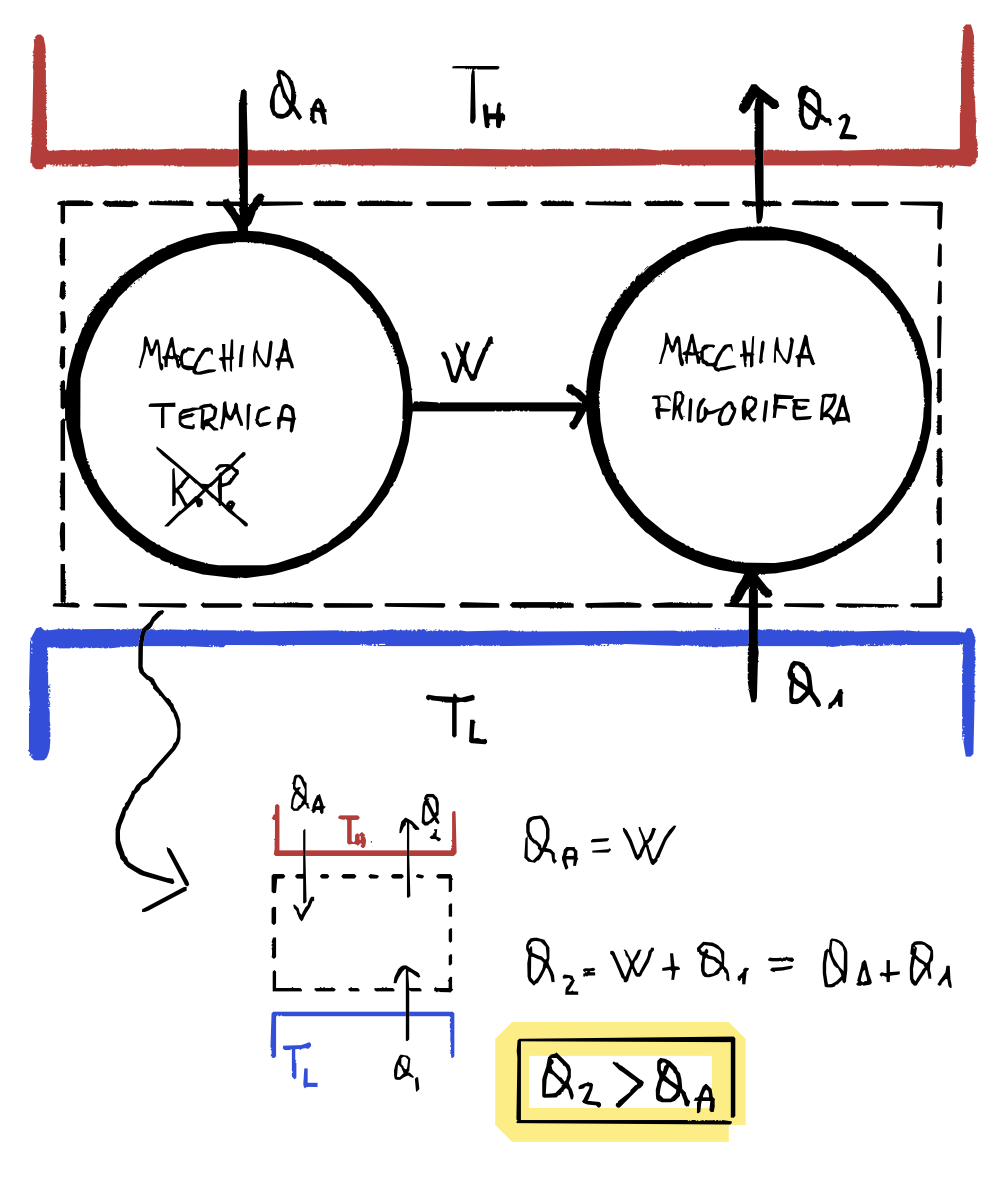 Q_A T_H Q_2
W
MACCHINA
TERMICA
K.P.
MACCHINA
FRIGORIFERA
Q_1
T_L
Q_A T_H Q_2
T_L Q_1
Q_A = W
Q_2 = W + Q_1 = Q_A + Q_1
Q_2 > Q_A